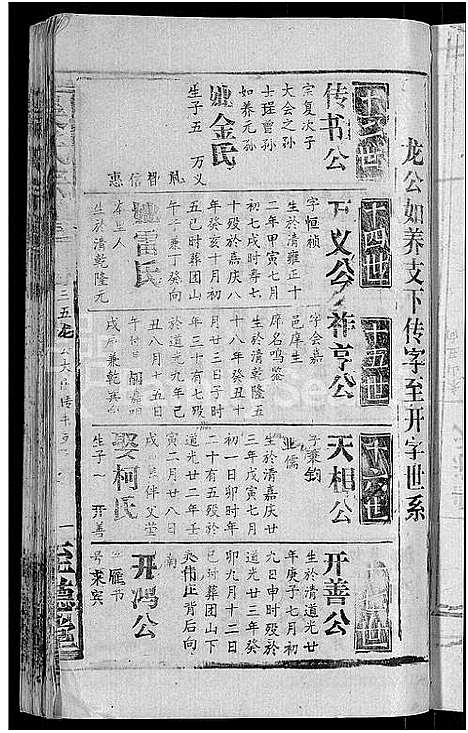 龙公如养支下传字至开字世系
十三世
传书公
宗复次子
大会之孙
士珵曾孙
如养元孙
娶金氏
生子五 万义
礼 智 信 惠
十四世
万义公
字恒祯
生於清雍正十
二年甲寅七月
初七戌时寿七
十殁於嘉庆八
年癸亥十月初
五巳时葬团山
午子兼丁癸向
娶雷氏
本里人
生於清乾隆元
十五世
祚亨公
字会嘉
邑庠生
席名鸣鉴
生於清乾隆五
十八年癸丑十
月廿三日子时
年三十有七殁
於道光九年己
丑八月十五日
戌辰兼乾巽向
十六世
天相公
字秉钧
业儒
生於清嘉庆廿
三年戊寅七月
初一日卯时年
二十有五殁於
道光廿二年壬
寅二月廿八日
娶柯氏
生子一 开善
开善公
生於清道光廿
年庚子七月初
九日申时殁於
道光廿三年癸
卯九月十二日
巳时葬团山下
背后向
南
开鸿公
字雁书
号来宾
三五
至德堂